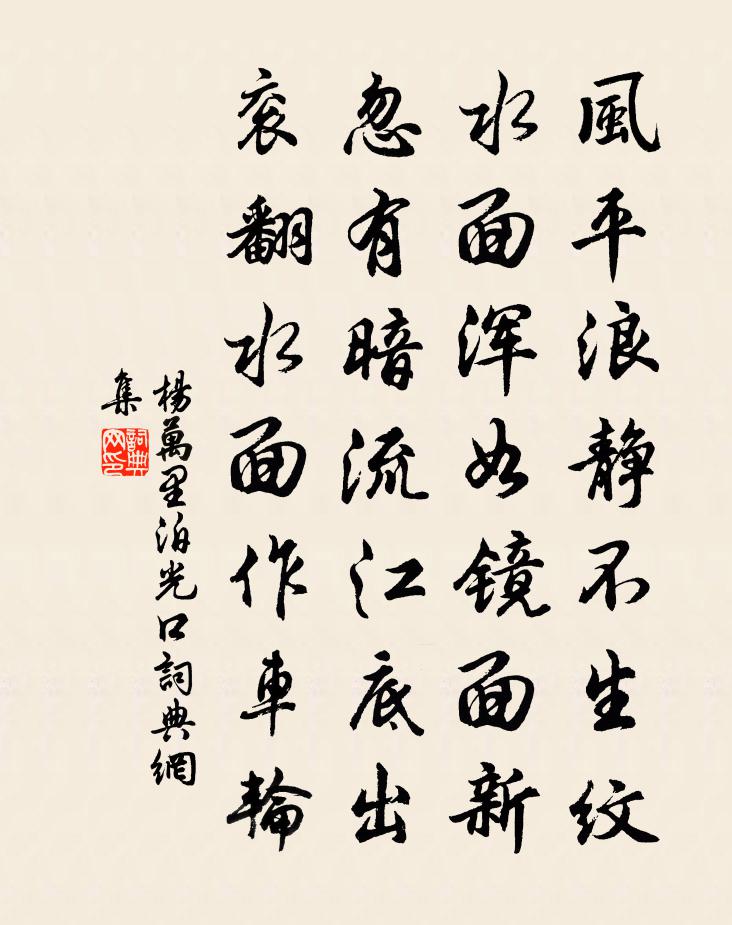 風平浪静不生紋
水面浑如镜面新
忽有暗流江底出
衮翻水面作車輪
楊萬里泊光口詞典網
集
詞典
网印